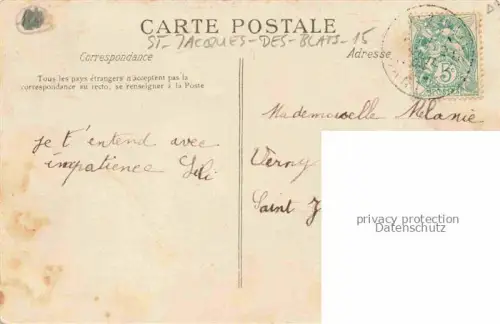 CARTE POSTALE
ST-JACQUES-DES-BLATS-15
Correspondance
Adresse
Tous les pays étrangers n'acceptent pas la
correspondance au recto, se renseigner à la Poste
5
Mademoiselle Mélanie
je t'entend avec
impatience
Verny
Saint J
privacy protection
Datenschutz